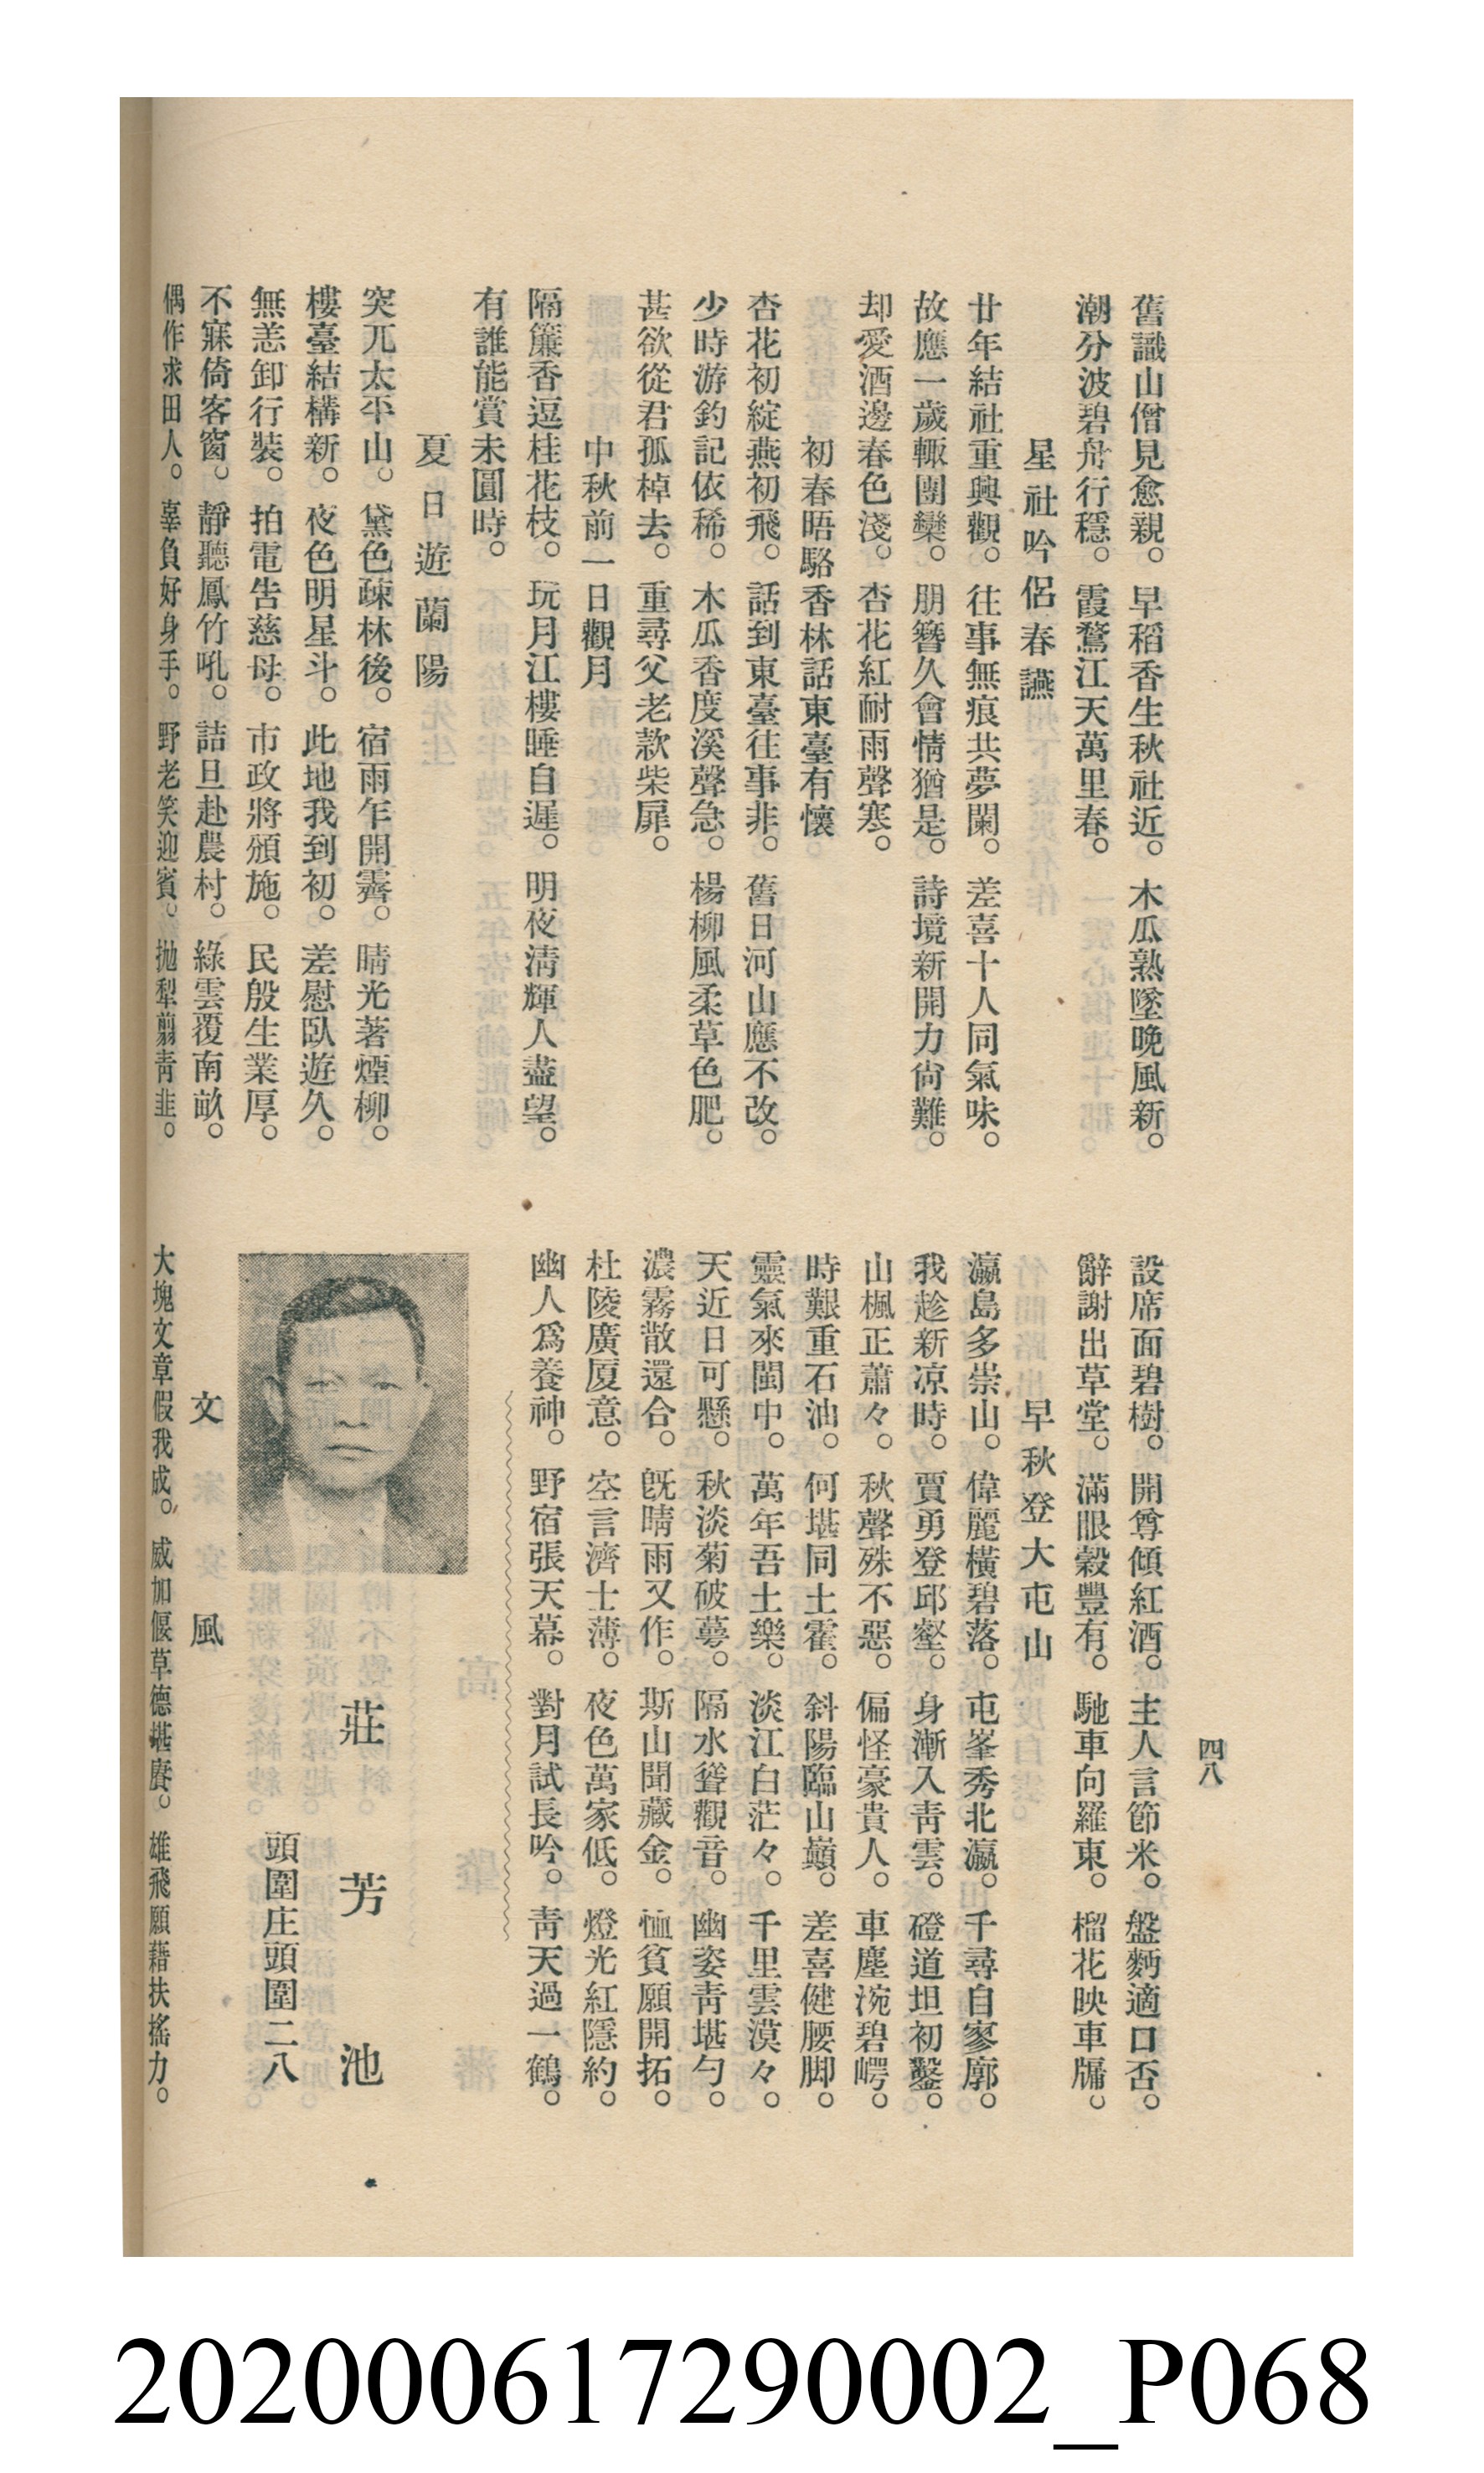 四八
舊識山僧見愈親。早稻香生秋社近。木瓜熟墜晚風新。
潮分波碧舟行穩。霞鶩江天萬里春。
星社吟侶春讌
廿年結社重興觀。往事無痕共夢闌。差喜十人同氣味。
故應一歲輙團欒。朋簪久會情猶是。詩境新開力尙難。
却愛酒邊春色淺。杏花紅耐雨聲寒。
初春晤駱香林話東臺有懷
杏花初綻燕初飛。話到東臺往事非。舊日河山應不改。
少時游釣記依稀。木瓜香度溪聲急。楊柳風柔草色肥。
甚欲從君孤棹去。重尋父老款柴扉。
中秋前一日觀月
隔簾香逗桂花枝。玩月江樓睡自遲。明夜淸輝人盡望。
有誰能賞未圓時。
夏日遊蘭陽
突兀太平山。黛色疎林後。宿雨乍開霽。晴光著煙柳。
樓臺結構新。夜色明星斗。此地我到初。差慰臥遊久。
無恙卸行裝。拍電告慈母。市政將頒施。民殷生業厚。
不寐倚客窗。靜聽鳳竹吼。詰旦赴農村。綠雲覆南畝。
偶作求田人。辜負好身手。野老笑迎賓。拋犁翦靑韭。
設席面碧樹。開尊傾紅酒。主人言節米。盤麪適口否。
辭謝出草堂。滿眼穀豐有。馳車向羅東。榴花映車牖。
早秋登大屯山
瀛島多崇山。偉麗橫碧落。屯峯秀北瀛。千尋自寥廓。
我趁新凉時。賈勇登邱壑。身漸入靑雲。磴道坦初鑿。
山楓正蕭々。秋聲殊不惡。偏怪豪貴人。車塵涴碧崿。
時艱重石油。何堪同土霍。斜陽臨山巓。差喜健腰脚。
靈氣來閩中。萬年吾土樂。淡江白茫々。千里雲漠々。
天近日可懸。秋淡菊破萼。隔水聳觀音。幽姿靑堪勺。
濃霧散還合。旣晴雨又作。斯山聞藏金。恤貧願開拓。
杜陵廣厦意。空言濟士薄。夜色萬家低。燈光紅隱約。
幽人爲養神。野宿張天幕。對月試長吟。靑天過一鶴。
莊芳池
頭圍庄頭圍二八
文風
大塊文章假我成。威加偃草德堪賡。雄飛願藉扶搖力。
202000617290002_P068